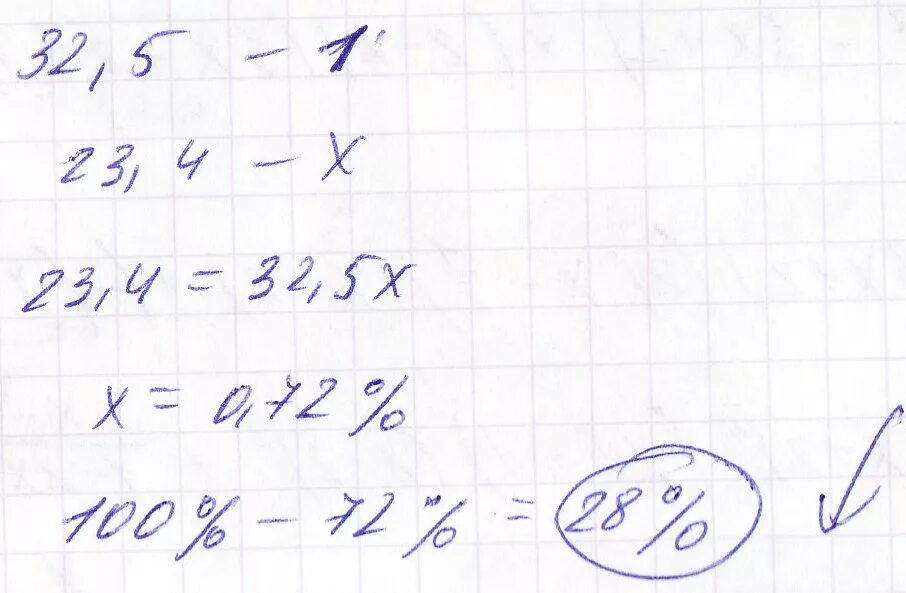 32,5 - 1
23,4 - x
23,4 = 32,5x
x = 0,72%
100% - 72% = 28%